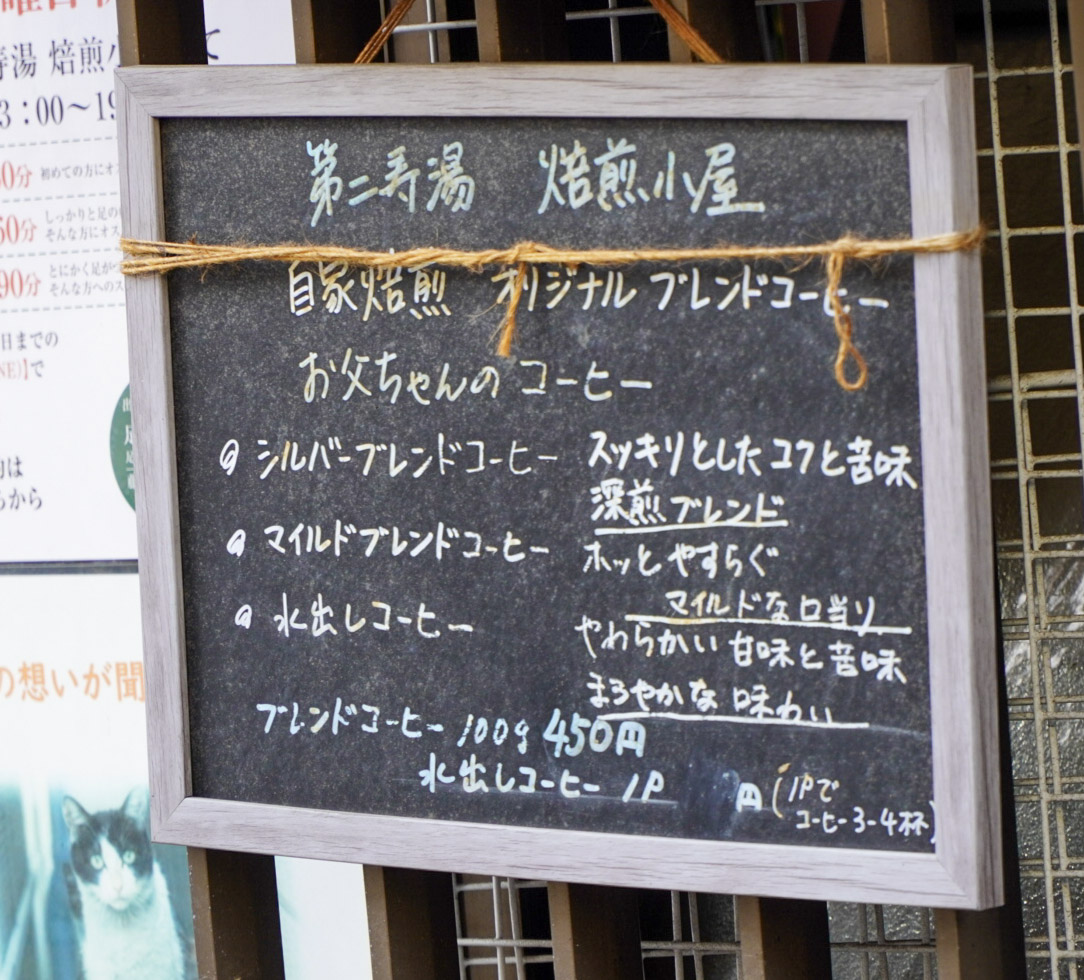 第二寿湯 焙煎小屋
自家焙煎 オリジナル ブレンドコーヒー
お父ちゃんの コーヒー
シルバーブレンドコーヒー スッキリとしたコクと苦味
深煎ブレンド
マイルドブレンドコーヒー ホッと やすらぐ
マイルドな口当り
水出しコーヒー やわらかい 甘味と苦味
まろやかな 味わい
ブレンドコーヒー 100g 450円
水出しコーヒー 1P 円 (1Pで
コーヒー3-4杯)
寿湯 焙煎小
3：00〜19
60分 初めての方にオ
しっかりと足の
そんな方にオス
90分 とにかく足が
そんな方へのス
日までの
NE)】で
は
から
の想いが聞